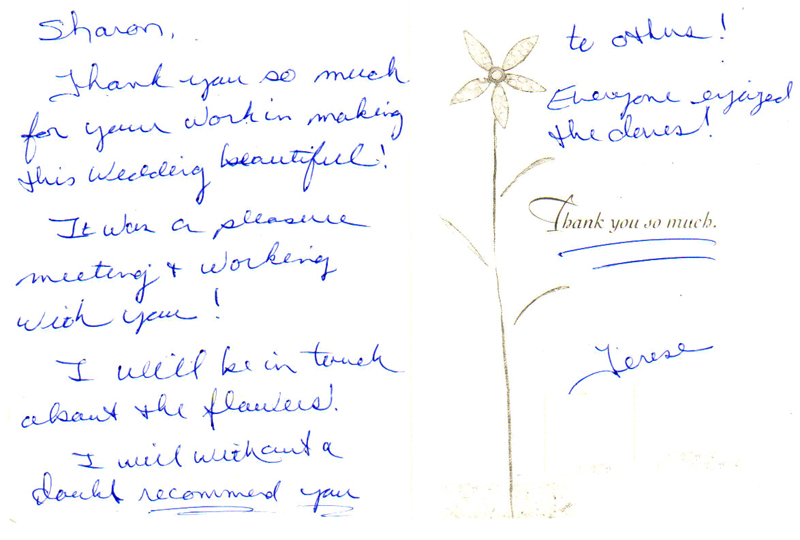 Sharon,
Thank you so much
for your work in making
this Wedding beautiful!
It was a pleasure
meeting & working
with you!
I will be in touch
about the flowers!
I will without a
doubt recommend you
to others!
Everyone enjoyed
the doves!
Thank you so much.
Terese